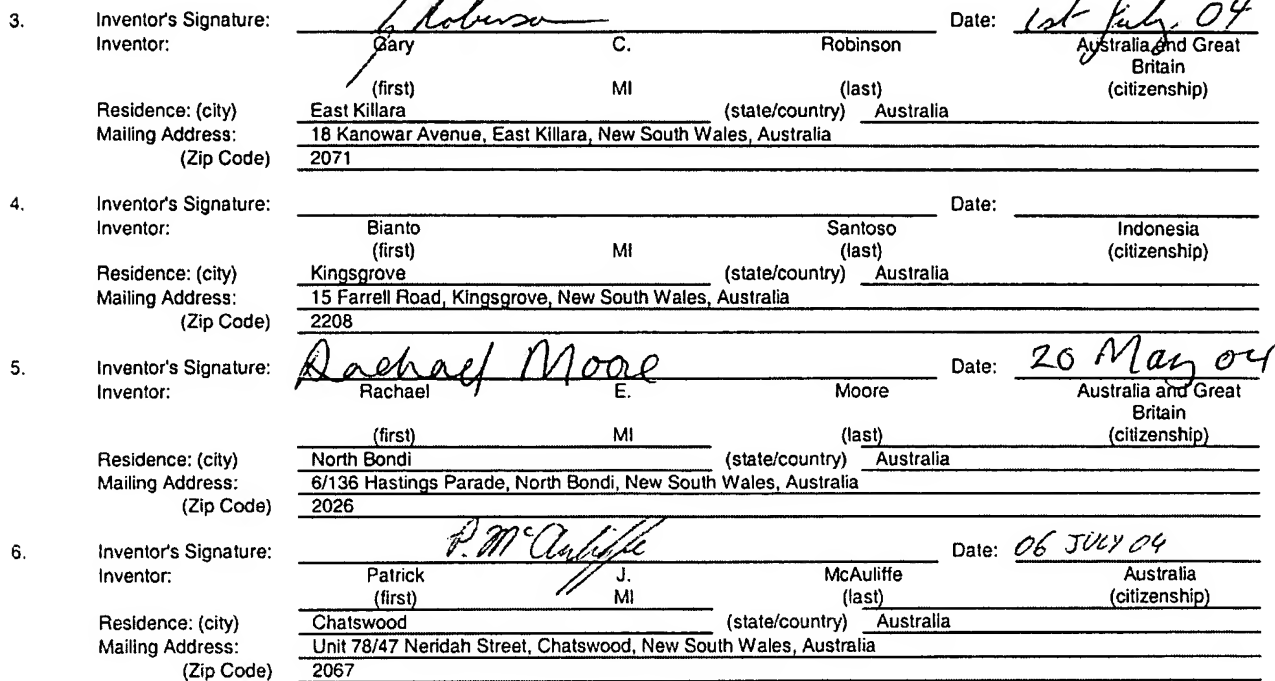 3. Inventor's Signature: G Robinson Date: 1st July, 04
Inventor: Gary C. Robinson Australia and Great
Britain
(first) MI (last) (citizenship)
Residence: (city) East Killara (state/country) Australia
Mailing Address: 18 Kanowar Avenue, East Killara, New South Wales, Australia
(Zip Code) 2071
4. Inventor's Signature: Date:
Inventor: Bianto Santoso Indonesia
(first) MI (last) (citizenship)
Residence: (city) Kingsgrove (state/country) Australia
Mailing Address: 15 Farrell Road, Kingsgrove, New South Wales, Australia
(Zip Code) 2208
5. Inventor's Signature: Rachael Moore Date: 20 May 04
Inventor: Rachael E. Moore Australia and Great
Britain
(first) MI (last) (citizenship)
Residence: (city) North Bondi (state/country) Australia
Mailing Address: 6/136 Hastings Parade, North Bondi, New South Wales, Australia
(Zip Code) 2026
6. Inventor's Signature: P. McAuliffe Date: 06 JULY 04
Inventor: Patrick J. McAuliffe Australia
(first) MI (last) (citizenship)
Residence: (city) Chatswood (state/country) Australia
Mailing Address: Unit 78/47 Neridah Street, Chatswood, New South Wales, Australia
(Zip Code) 2067